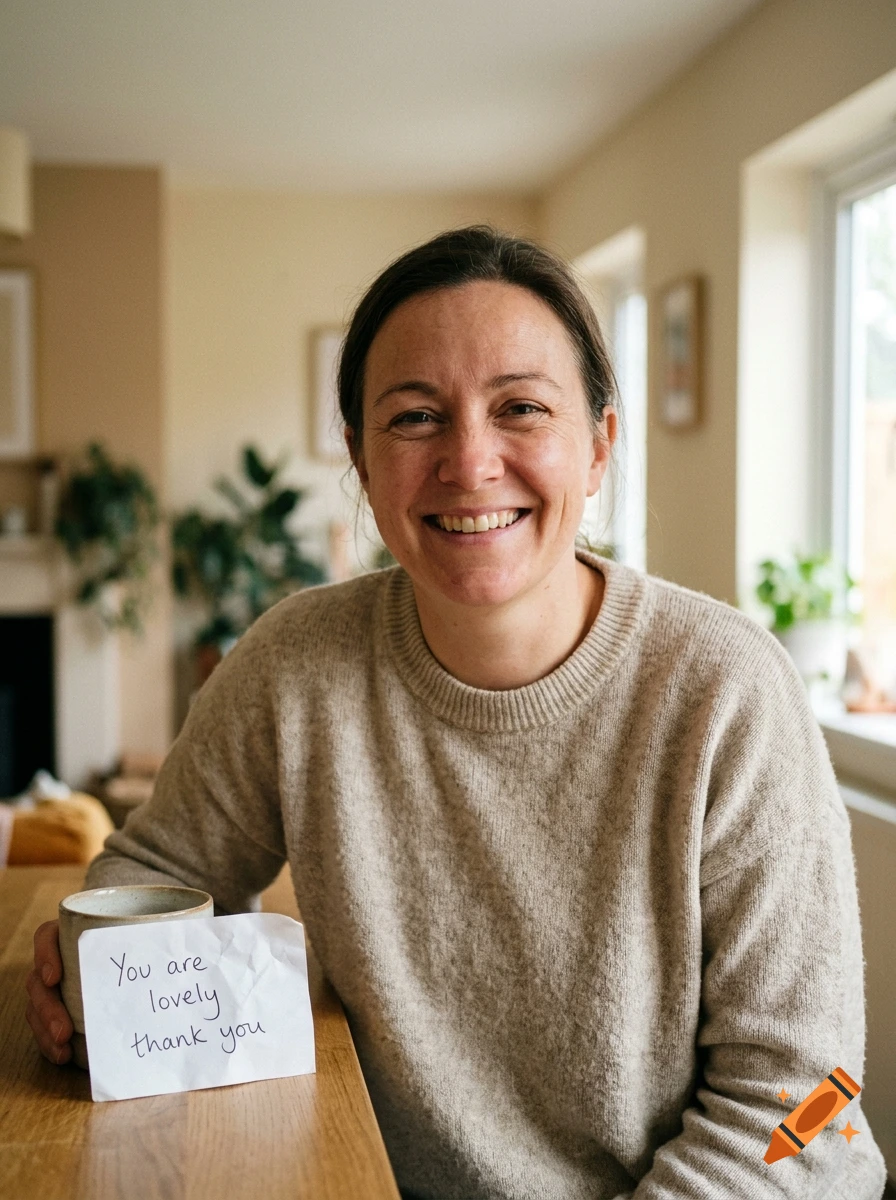 You are
lovely
thank you